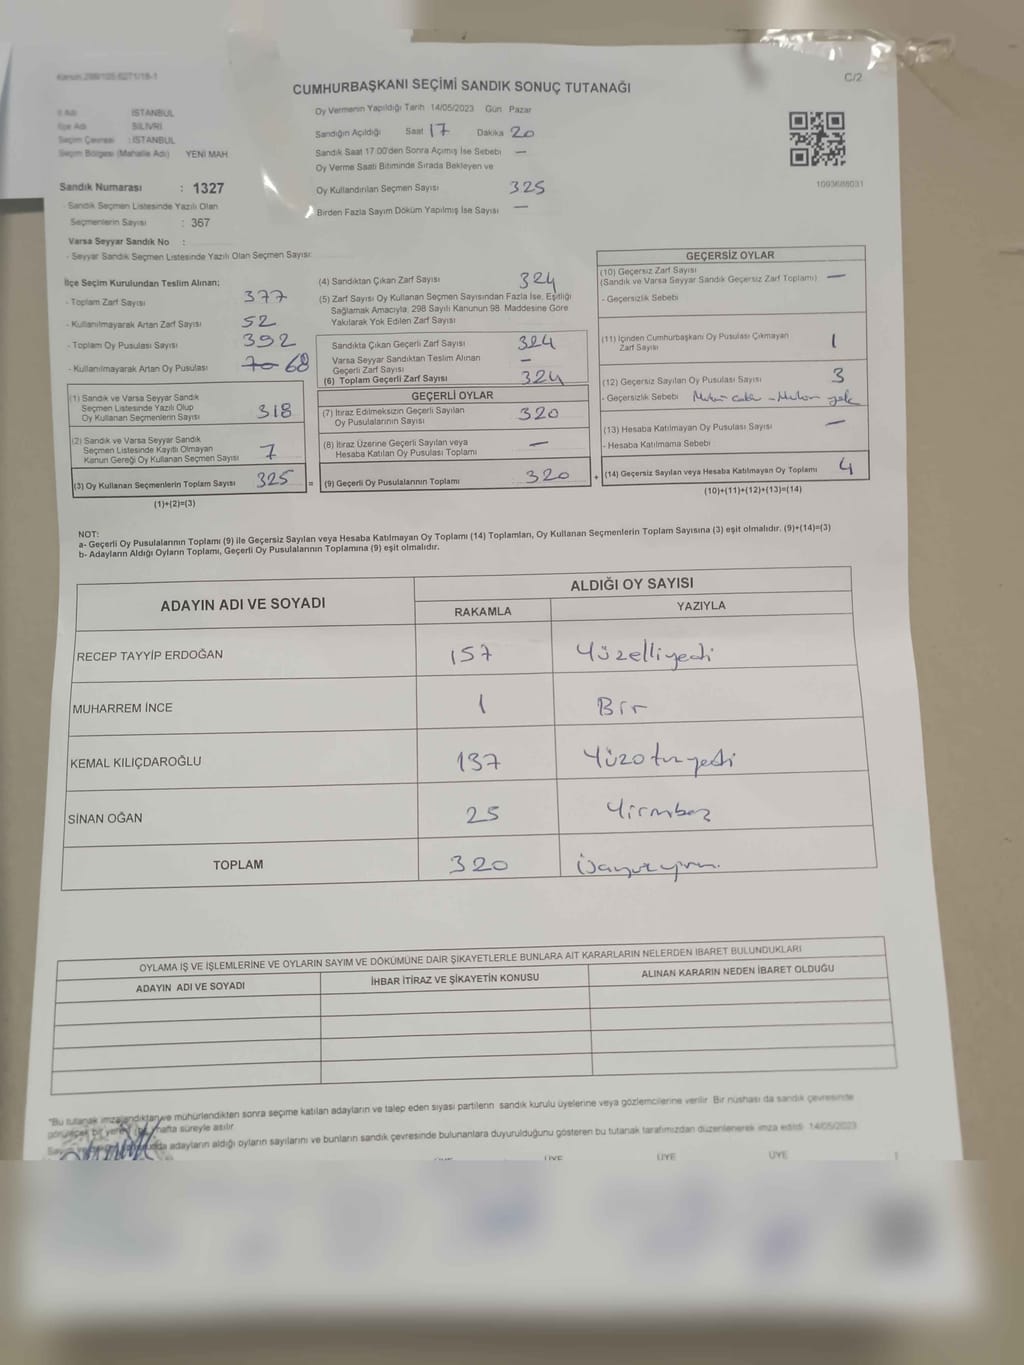 C/2
CUMHURBAŞKANI SEÇİMİ SANDIK SONUÇ TUTANAĞI
İSTANBUL
SİLİVRİ
Seçim Çevresi : İSTANBUL
Seçim Bölgesi (Mahalle Adı) YENİ MAH.
Sandık Numarası : 1327
- Sandık Seçmen Listesinde Yazılı Olan
Seçmenlerin Sayısı : 367
Varsa Seyyar Sandık No :
- Seyyar Sandık Seçmen Listesinde Yazılı Olan Seçmen Sayısı:
Oy Vermenin Yapıldığı Tarih 14/05/2023 Gün Pazar
Sandığın Açıldığı Saat 17 Dakika 20
Sandık Saat 17:00'den Sonra Açımış İse Sebebi —
Oy Verme Saati Bitiminde Sırada Bekleyen ve
Oy Kullandırılan Seçmen Sayısı 325
Birden Fazla Sayım Döküm Yapılmış İse Sayısı —
1093688031
İlçe Seçim Kurulundan Teslim Alınan;
- Toplam Zarf Sayısı 377
- Kullanılmayarak Artan Zarf Sayısı 52
- Toplam Oy Pusulası Sayısı 392
- Kullanılmayarak Artan Oy Pusulası 70 68
(1) Sandık ve Varsa Seyyar Sandık
Seçmen Listesinde Yazılı Olup
Oy Kullanan Seçmenlerin Sayısı 318
(2) Sandık ve Varsa Seyyar Sandık
Seçmen Listesinde Kayıtlı Olmayan
Kanun Gereği Oy Kullanan Seçmen Sayısı 7
(3) Oy Kullanan Seçmenlerin Toplam Sayısı 325 =
(1)+(2)=(3)
(4) Sandıktan Çıkan Zarf Sayısı 324
(5) Zarf Sayısı Oy Kullanan Seçmen Sayısından Fazla İse, Eşitliği
Sağlamak Amacıyla, 298 Sayılı Kanunun 98. Maddesine Göre
Yakılarak Yok Edilen Zarf Sayısı
Sandıkta Çıkan Geçerli Zarf Sayısı 324
Varsa Seyyar Sandıktan Teslim Alınan
Geçerli Zarf Sayısı —
(6) Toplam Geçerli Zarf Sayısı 324
GEÇERLİ OYLAR
(7) İtiraz Edilmeksizin Geçerli Sayılan
Oy Pusulalarının Sayısı 320
(8) İtiraz Üzerine Geçerli Sayılan veya
Hesaba Katılan Oy Pusulası Toplamı —
(9) Geçerli Oy Pusulalarının Toplamı 320 +
GEÇERSİZ OYLAR
(10) Geçersiz Zarf Sayısı
(Sandık ve Varsa Seyyar Sandık Geçersiz Zarf Toplamı) —
- Geçersizlik Sebebi
(11) İçinden Cumhurbaşkanı Oy Pusulası Çıkmayan
Zarf Sayısı 1
(12) Geçersiz Sayılan Oy Pusulası Sayısı 3
- Geçersizlik Sebebi
(13) Hesaba Katılmayan Oy Pusulası Sayısı —
- Hesaba Katılmama Sebebi
(14) Geçersiz Sayılan veya Hesaba Katılmayan Oy Toplamı 4
(10)+(11)+(12)+(13)=(14)
NOT:
a- Geçerli Oy Pusulalarının Toplamı (9) ile Geçersiz Sayılan veya Hesaba Katılmayan Oy Toplamı (14) Toplamları, Oy Kullanan Seçmenlerin Toplam Sayısına (3) eşit olmalıdır. (9)+(14)=(3)
b- Adayların Aldığı Oyların Toplamı, Geçerli Oy Pusulalarının Toplamına (9) eşit olmalıdır.
ADAYIN ADI VE SOYADI
ALDIĞI OY SAYISI
RAKAMLA YAZIYLA
RECEP TAYYİP ERDOĞAN 157 Yüzelliyedi
MUHARREM İNCE 1 Bir
KEMAL KILIÇDAROĞLU 137 Yüzotuzyedi
SİNAN OĞAN 25 Yirmibeş
TOPLAM 320
OYLAMA İŞ VE İŞLEMLERİNE VE OYLARIN SAYIM VE DÖKÜMÜNE DAİR ŞİKAYETLERLE BUNLARA AİT KARARLARIN NELERDEN İBARET BULUNDUKLARI
ADAYIN ADI VE SOYADI İHBAR İTİRAZ VE ŞİKAYETİN KONUSU ALINAN KARARIN NEDEN İBARET OLDUĞU
"Bu tutanak imzalandıktan ve mühürlendikten sonra seçime katılan adayların ve talep eden siyasi partilerin sandık kurulu üyelerine veya gözlemcilerine verilir. Bir nüshası da sandık çevresinde
hafta süreyle asılır.
adayların aldığı oyların sayılarını ve bunların sandık çevresinde bulunanlara duyurulduğunu gösteren bu tutanak tarafımızdan düzenlenerek imza edildi. 14/05/2023
ÜYE ÜYE ÜYE